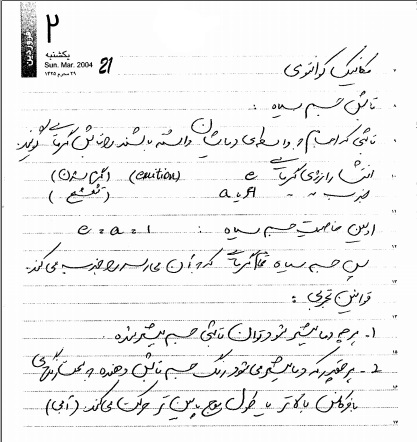 ۲
فروردین
یکشنبه
Sun. Mar. 2004 21
۲۹ محرم ۱۴۲۵
مکانیک کوانتومی
تابش جسم سیاه :
تابشی که اجسام به واسطه‌ی دمایشان داشته باشند را تابش گرمایی گویند.
انتشار انرژی گرمایی e (emition)
جذب " " A یا a
اولین خاصیت جسم سیاه : e = a = 1
پس جسم سیاه گرمایی که به آن می‌رسد را جذب می‌کند.
قوانین تجربی :
1. هرچه دما بیشتر شود توان تابشی جسم بیشتر شده.
2. هرچقدر که دما بیشتر می‌شود رنگ جسم تابش دهنده به سمت رنگهای
با فرکانس بالاتر یا طول موج پایین‌تر حرکت می‌کند. (آبی)